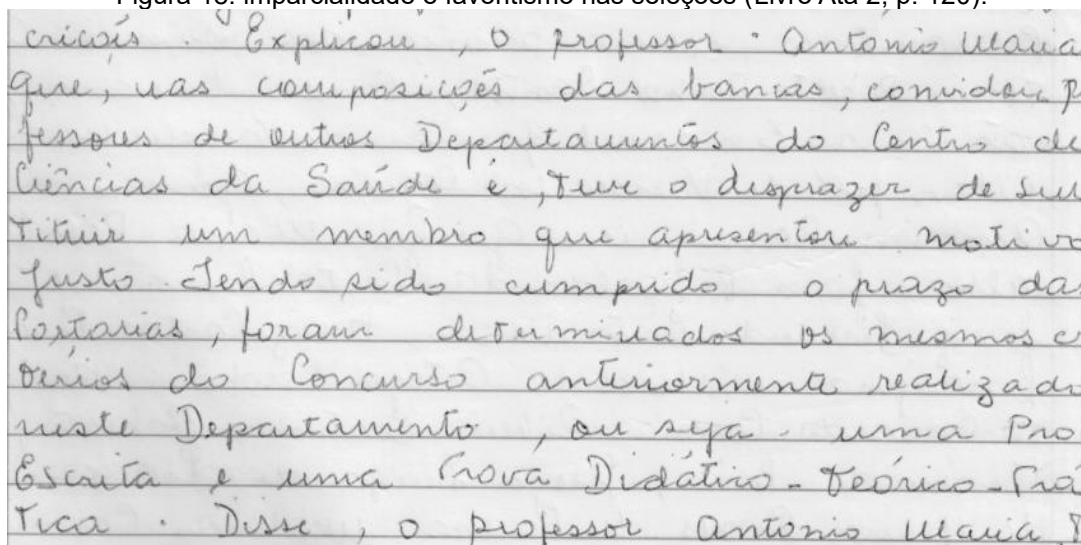 Figura 18: Imparcialidade e favoritismo nas seleções (Livro Ata 2, p. 120).
cricois. Explicou, o professor Antonio Maria
que, nas composicões das bancas, convidou p
fessores de outros Departamentos do Centro de
Ciências da Saúde e, teve o desprazer de
tituir um membro que apresentou motivo
justo. Tendo sido cumprido o prazo das
Portarias, foram determinados os mesmos c
térios do Concurso anteriormente realizado
neste Departamento, ou seja. uma Pro
Escrita e uma Prova Didático-Teórico-Prá
tica. Disse, o professor Antonio Maria,